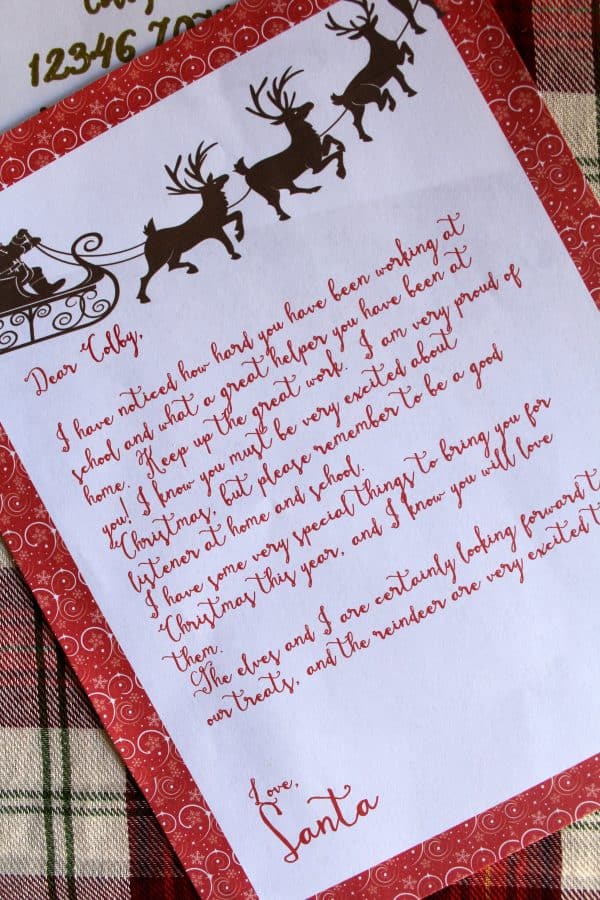 12346
Dear Colby,
I have noticed how hard you have been working at
school and what a great helper you have been at
home. Keep up the great work. I am very proud of
you! I know you must be very excited about
Christmas, but please remember to be a good
listener at home and school.
I have some very special things to bring you for
Christmas this year, and I know you will love
them.
The elves and I are certainly looking forward t
our treats, and the reindeer are very excited t
Love,
Santa